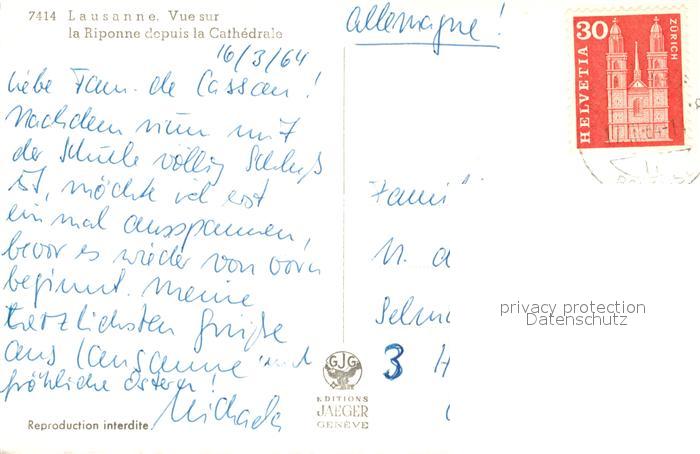 7414 Lausanne. Vue sur
la Riponne depuis la Cathédrale
16/3/64
Liebe Fam. de Cassan!
Nachdem nun mit
der Schule völlig Schluß
ist, möchte ich erst
einmal ausspannen,
bevor es wieder von vorn
beginnt. Meine
herzlichsten Grüße
aus Lausanne und
fröhliche Ostern!
Michaela
Reproduction interdite
GJG
EDITIONS
JAEGER
GENÈVE
Allemagne!
30
HELVETIA
ZÜRICH
Famili
M. a
Selm
3 H
privacy protection
Datenschutz